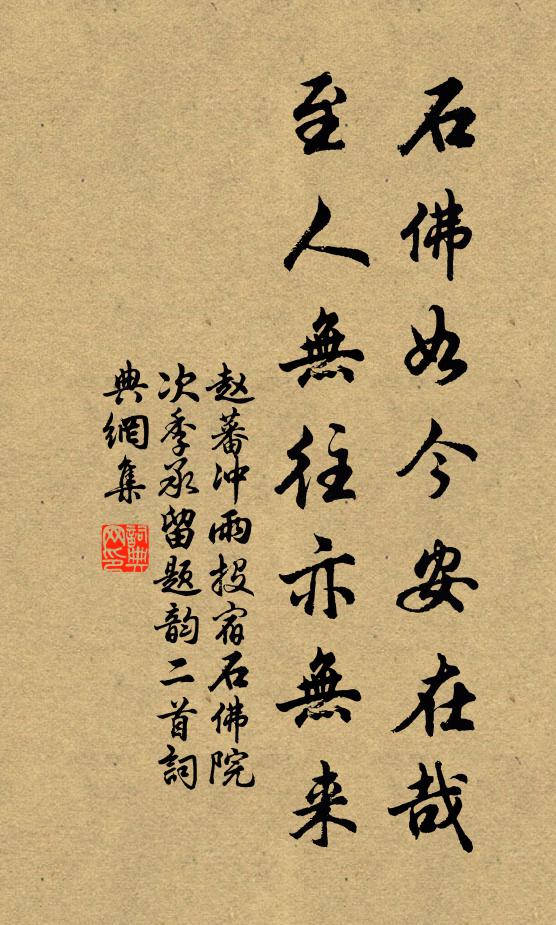 石佛如今安在哉
至人無往亦無来
赵蕃冲雨投宿石佛院
次季承留题韵二首詞
典網集
詞典
网印